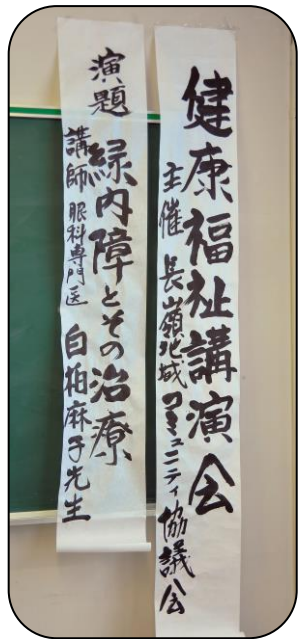 健康福祉講演会
主催 長嶺地域コミュニティ協議会
演題 緑内障とその治療
講師 眼科専門医 白柏麻子先生